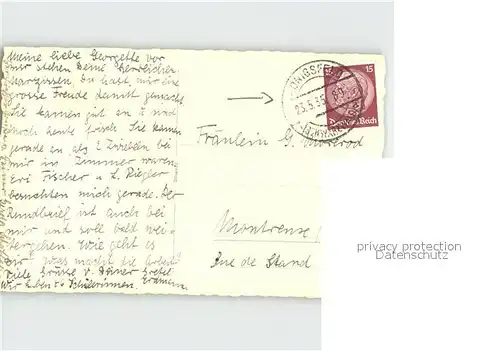 Meine liebe Georgette vor
mir stehen Deine herrlichen
Narzissen. Du hast mir eine
grosse Freude damit gemacht
Sie kamen gut an u. sind
noch heute frisch. Sie kamen
gerade an als 2 Zwiebeln bei
mir im Zimmer waren
Eri Fischer u. L. Riegler
besuchten mich gerade. Der
Rundbrief ist auch bei
mir und soll bald wei-
tergehen. Wie geht es
Dir, was macht die Arbeit?
Viele Grüsse v. Deiner Gretel
Wir haben Schülerinnen.
KÖNIGSFELD
23.5.38
15
Deutsches Reich
Fräulein G.
Montreux
Rue de Stand
privacy protection
Datenschutz